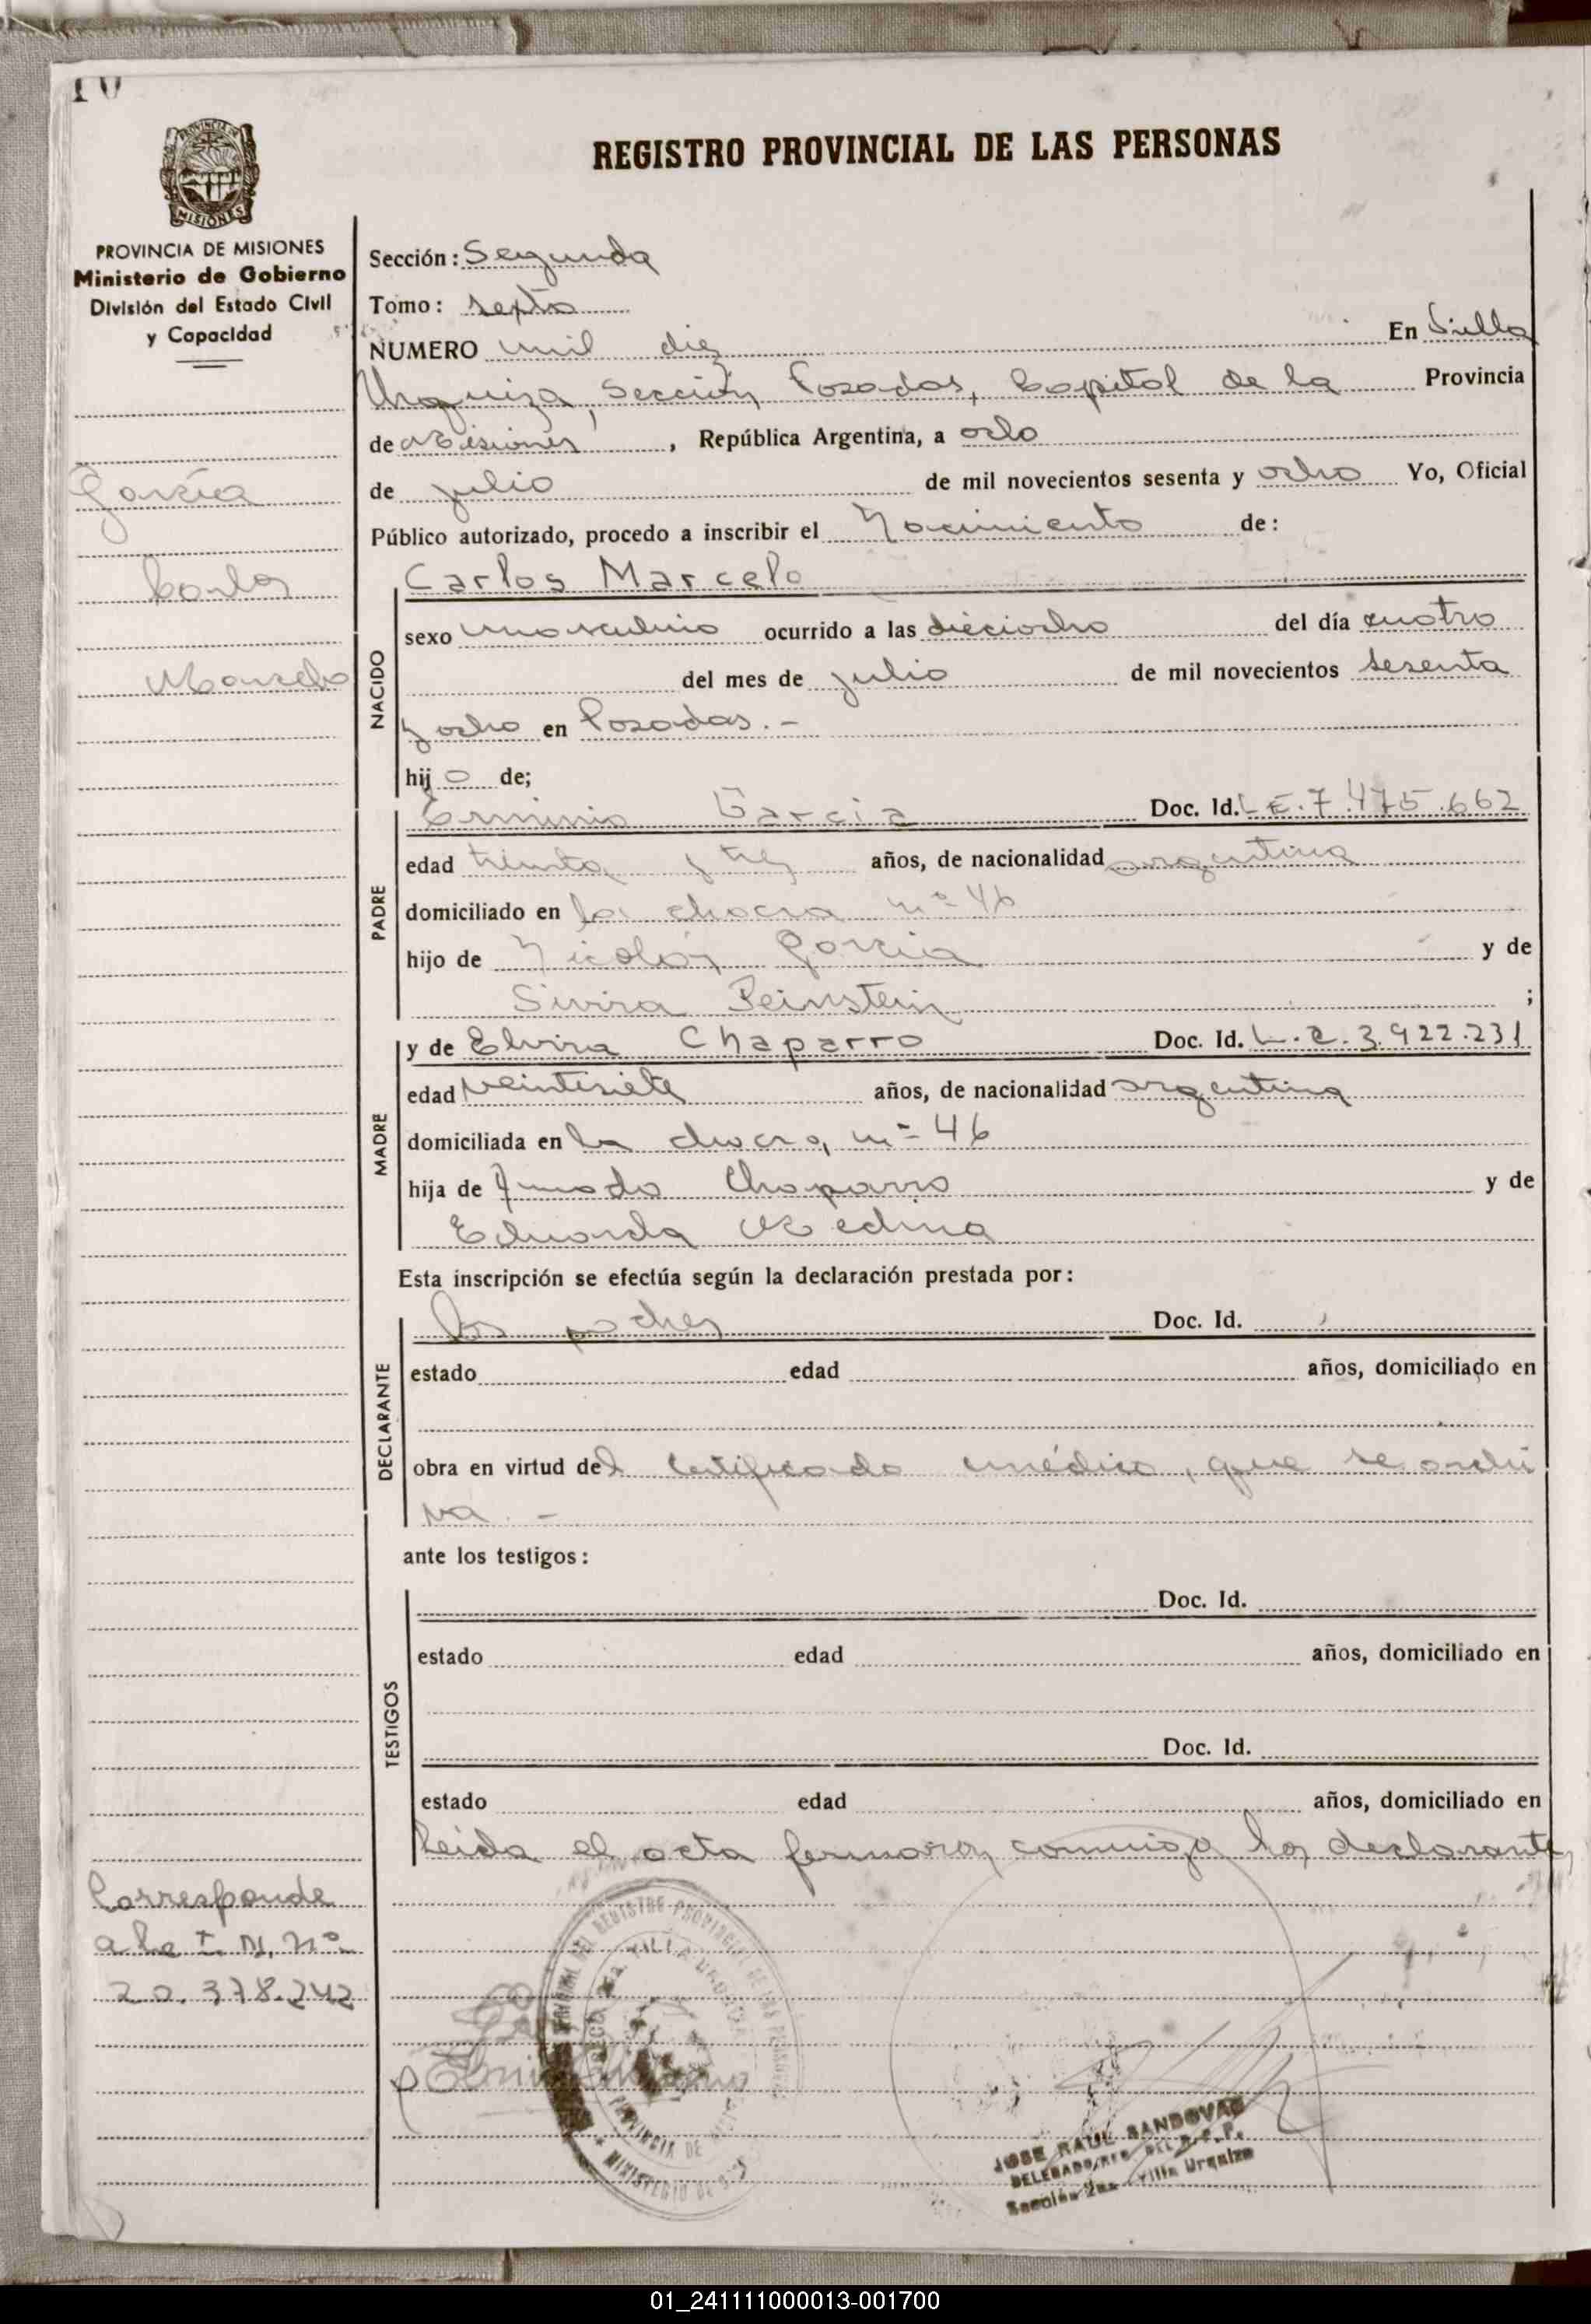 REGISTRO PROVINCIAL DE LAS PERSONAS
MISIONES
PROVINCIA DE MISIONES
Ministerio de Gobierno
División del Estado Civil
y Capacidad
García
Carlos
Marcelo
Corresponde
a la I.N. nº
20.378.242
Sección: Segunda
Tomo: sexto
NUMERO mil diez En Villa
Urquiza, sección Posadas, Capital de la Provincia
de Misiones, República Argentina, a ocho
de julio de mil novecientos sesenta y ocho Yo, Oficial
Público autorizado, procedo a inscribir el Nacimiento de:
NACIDO
Carlos Marcelo
sexo masculino ocurrido a las dieciocho del día cuatro
del mes de julio de mil novecientos sesenta
y ocho en Posadas.-
hijo de;
PADRE
Erminio Garcia Doc. Id. L.E. 7.475.662
edad treinta y tres años, de nacionalidad argentina
domiciliado en la chacra nº 46
hijo de Nicolás García y de
Sivira Beinstein ;
MADRE
y de Elvira Chaparro Doc. Id. L.C. 3.922.231
edad veintisiete años, de nacionalidad argentina
domiciliada en la chacra nº 46
hija de Amado Chaparro y de
Eduarda Medina
Esta inscripción se efectúa según la declaración prestada por:
DECLARANTE
los padres Doc. Id.
estado edad años, domiciliado en
obra en virtud del certificado médico, que se archi
va.-
ante los testigos:
TESTIGOS
Doc. Id.
estado edad años, domiciliado en
Doc. Id.
estado edad años, domiciliado en
Leída el acta firmaron conmigo los declarantes
REGISTRO PROVINCIAL DE LAS PERSONAS
VILLA
PROVINCIA DE
MINISTERIO DE
JOSE RAUL SANDOVAL
DELEGADO DEL R.P.P.
Sección 2da Villa Urquiza
01_241111000013-001700